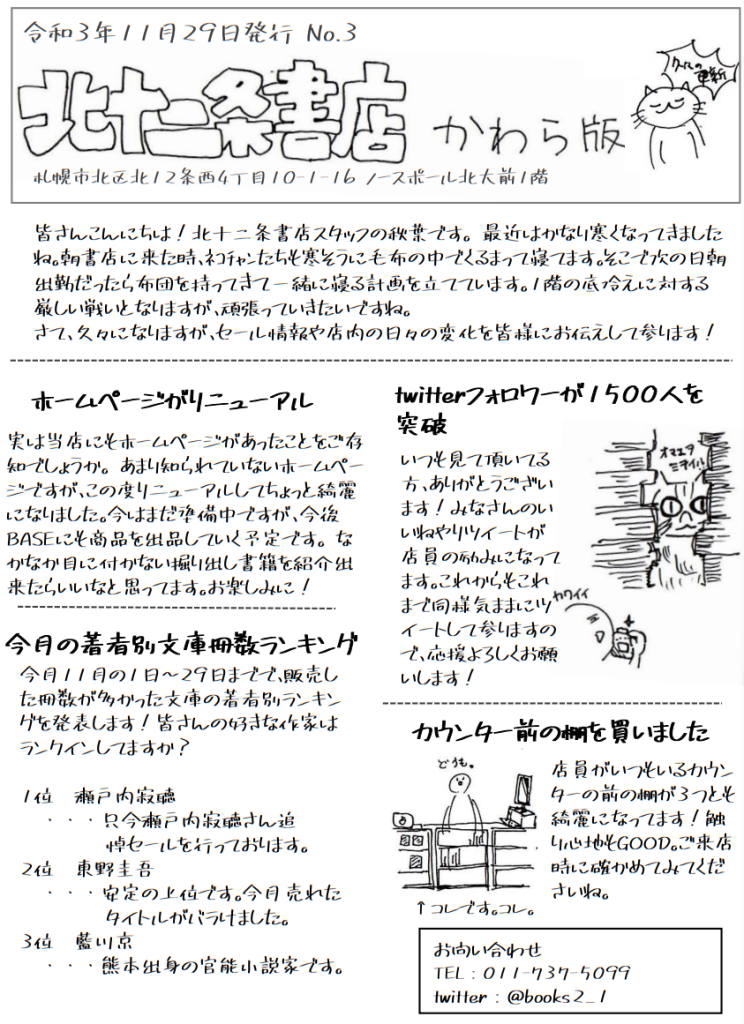 令和3年11月29日発行 No.3
北十二条書店 かわら版
札幌市北区北12条西4丁目10-1-16 ノースポール北大前1階
皆さんこんにちは！北十二条書店スタッフの秋葉です。最近はかなり寒くなってきました
ね。朝書店に来た時、ネコチャンたちも寒そうに毛布の中でくるまって寝てます。そこで次の日朝
出勤だったら布団を持ってきて一緒に寝る計画を立てています。1階の底冷えに対する
厳しい戦いとなりますが、頑張っていきたいですね。
さて、久々になりますが、セール情報や店内の日々の変化を皆様にお伝えして参ります！
ホームページがリニューアル
実は当店にもホームページがあったことをご存
知でしょうか。あまり知られていないホームペー
ジですが、この度リニューアルしてちょっと綺麗
になりました。今はまだ準備中ですが、今後
BASEにも商品を出品していく予定です。な
かなか目に付かない掘り出し書籍を紹介出
来たらいいなと思ってます。お楽しみに！
今月の著者別文庫冊数ランキング
今月11月の1日～29日までで、販売し
た冊数が多かった文庫の著者別ランキン
グを発表します！皆さんの好きな作家は
ランクインしてますか？
1位 瀬戸内寂聴
・・・只今瀬戸内寂聴さん追
悼セールを行っております。
2位 東野圭吾
・・・安定の上位です。今月売れた
タイトルがバラけました。
3位 藍川京
・・・熊本出身の官能小説家です。
twitterフォロワーが1500人を
突破
いつも見て頂いてる
方、ありがとうござい
ます！みなさんのい
いねやリツイートが
店員の励みになって
ます。これからもこれ
まで同様気ままにツ
イートして参りますの
で、応援よろしくお願
いします！
オマエヲ
ミテイル
カワイイ
カウンター前の棚を買いました
どうも。
店員がいつもいるカウン
ターの前の棚が3つとも
綺麗になってます！触
り心地もGOOD。ご来店
時に確かめてみてくだ
さいね。
↑コレです。コレ。
お問い合わせ
TEL：011-737-5099
twitter：@books2_1